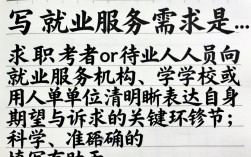 写就业服务需求是…
求职考者or待业人人员向
就业服务机构、学学校或
用人单单位清明晰表达自身
期望与诉求的关键环节；
科学、准碻确的